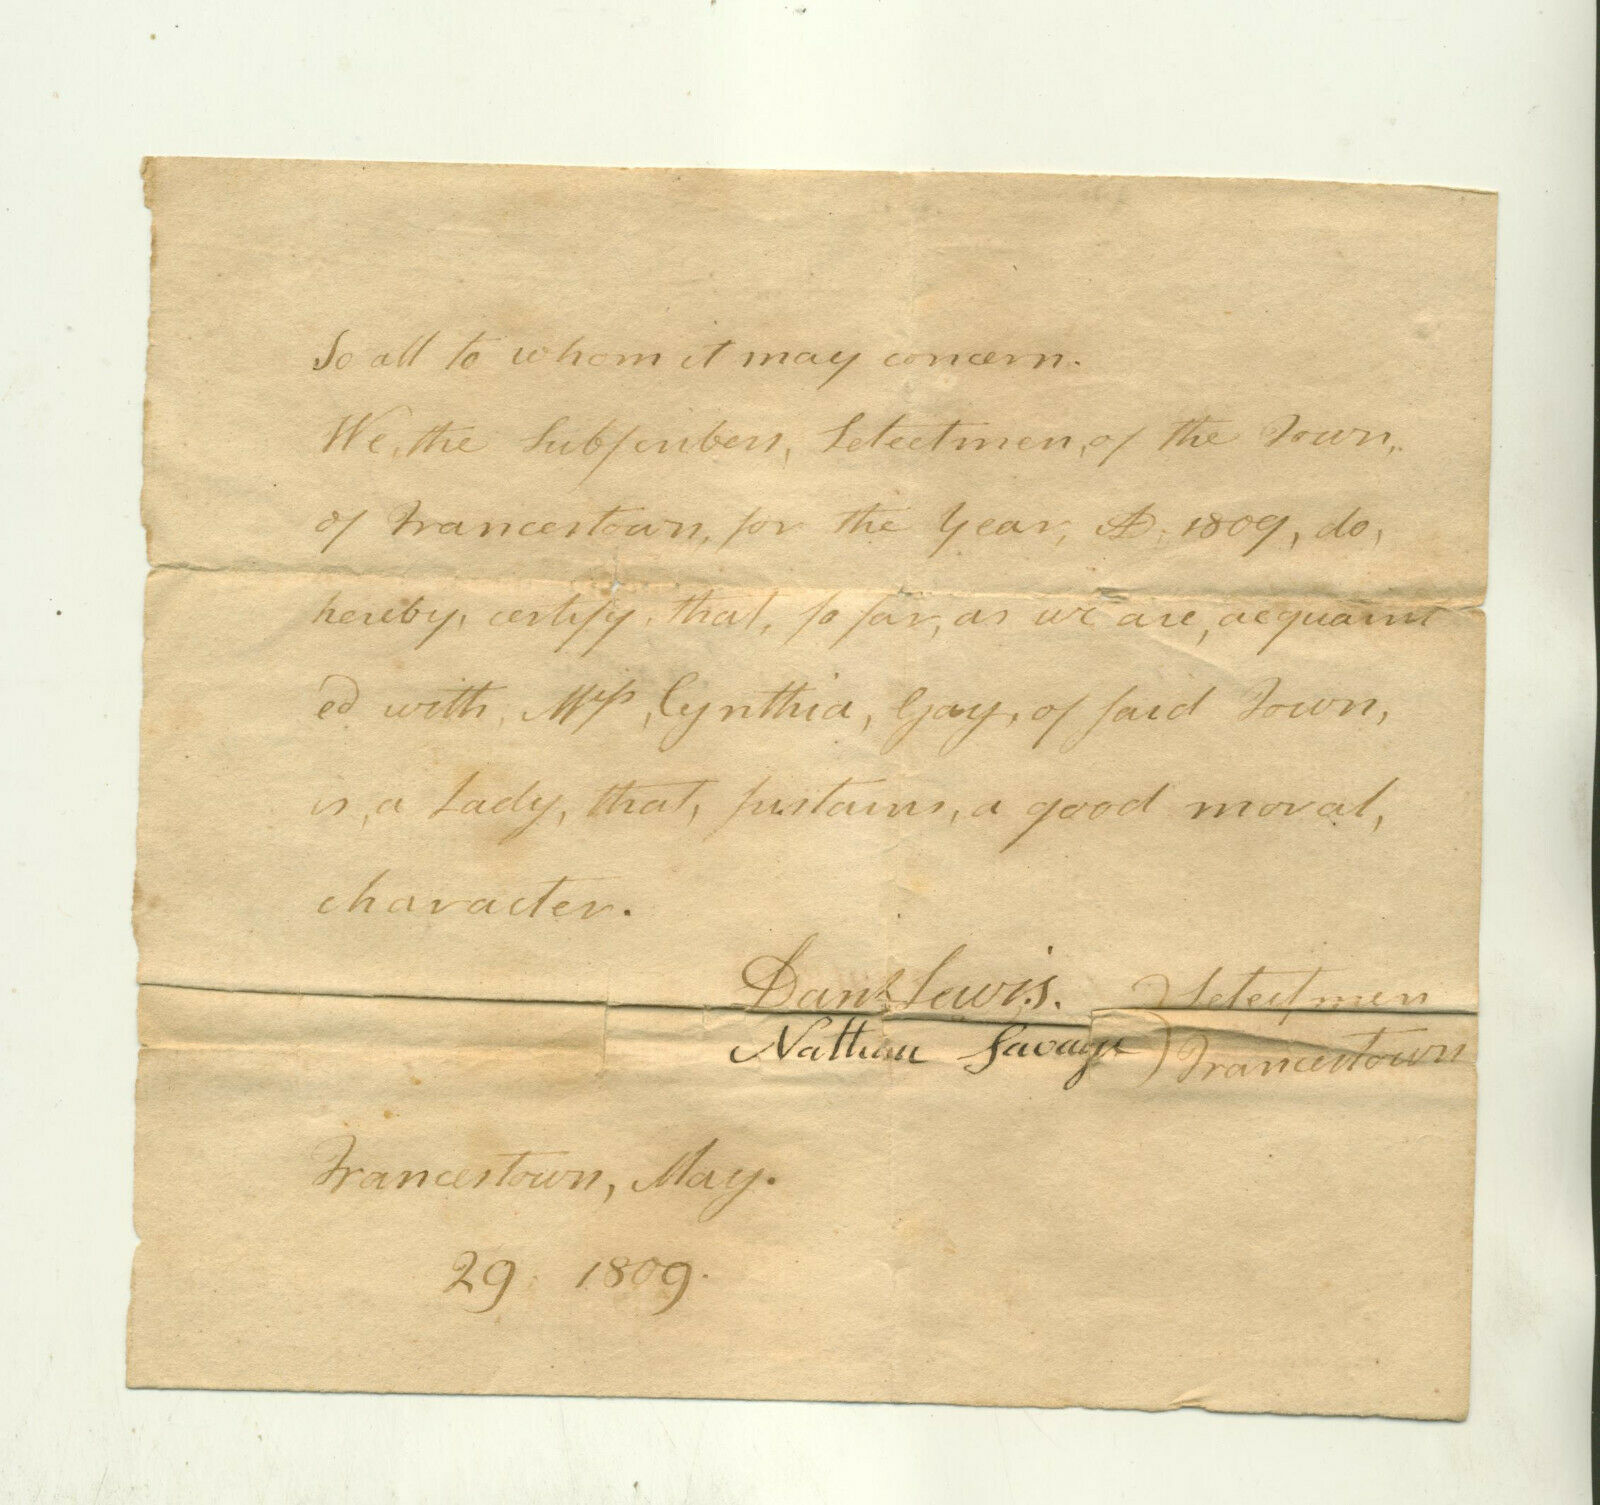 To all to whom it may concern.
We, the Subscribers, Selectmen, of the Town,
of Francestown, for the Year, AD. 1809, do,
hereby, certify, that, so far, as we are, acquaint
ed with, Miss, Cynthia, Gay, of said Town,
is, a Lady, that, sustains, a good moral,
character.
Danl Lewis. } Selectmen
Nathan Savage } Francestown
Francestown, May.
29. 1809.